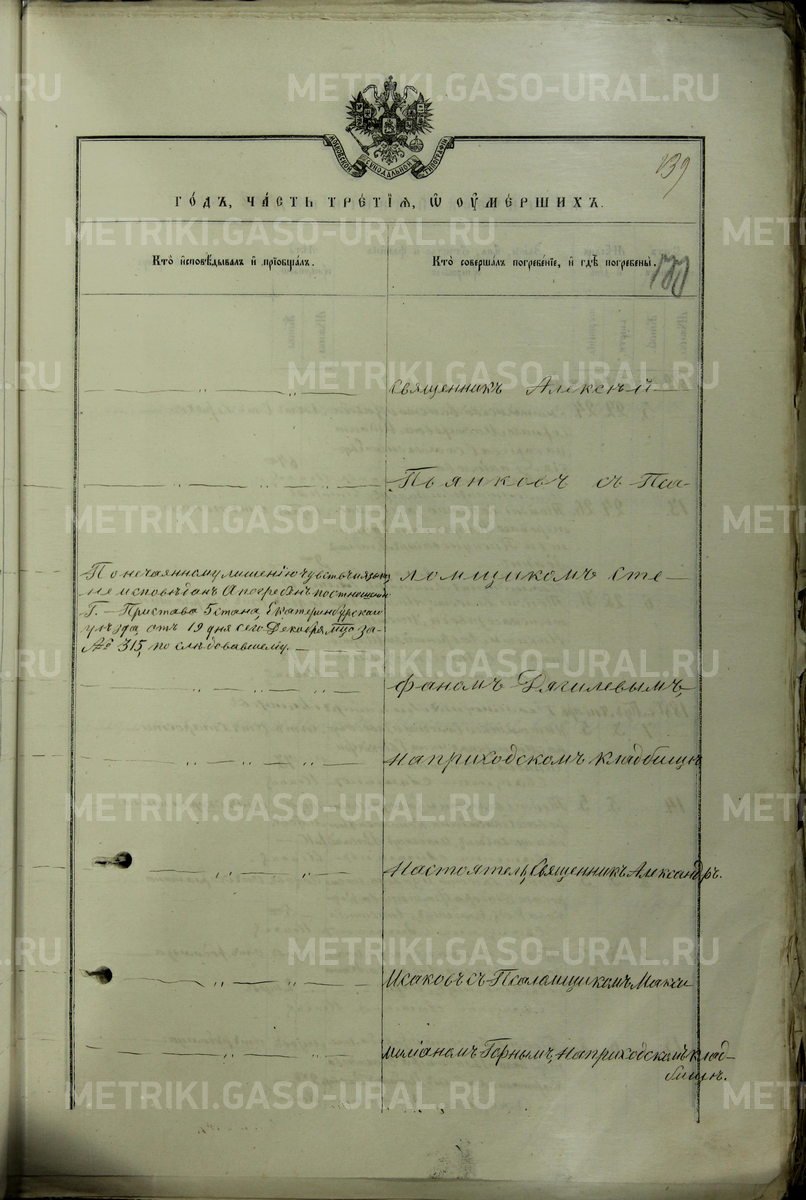 METRIKI.GASO-URAL.RU
МОСКОВСКОЙ СѴНОДАЛЬНОЙ ТИПОГРАФІИ
139
ГО́ДЪ, ЧА́СТЬ ТРЕ́ТІѦ, Ѡ҆ ОУ҆МЕ́РШИХЪ.
Кто̀ и҆сповѣ́дывалъ и҆ прїѡбща́лъ.
Кто̀ соверша́лъ погребе́нїе, и҆ гдѣ̀ погребены̀.
Священникъ Алексѣй
Пьянковъ съ Пса-
По нечаянному лишенію чувствъ и языка
не исповѣданъ А погребенъ по отношенію
Г. Пристава 5 стана, Екатеринбурскаго
уѣзда, отъ 19 дня сего Декабря мца за
№ 315, по слѣдовавшему.
ломщикомъ Сте-
фаномъ Дягилевымъ,
на приходскомъ кладбищѣ
Настоятель, Священникъ Александръ.
Исаковъ съ Псаломщикомъ Макси
миліаномъ Горнымъ, на приходскомъ клад-
бищѣ.